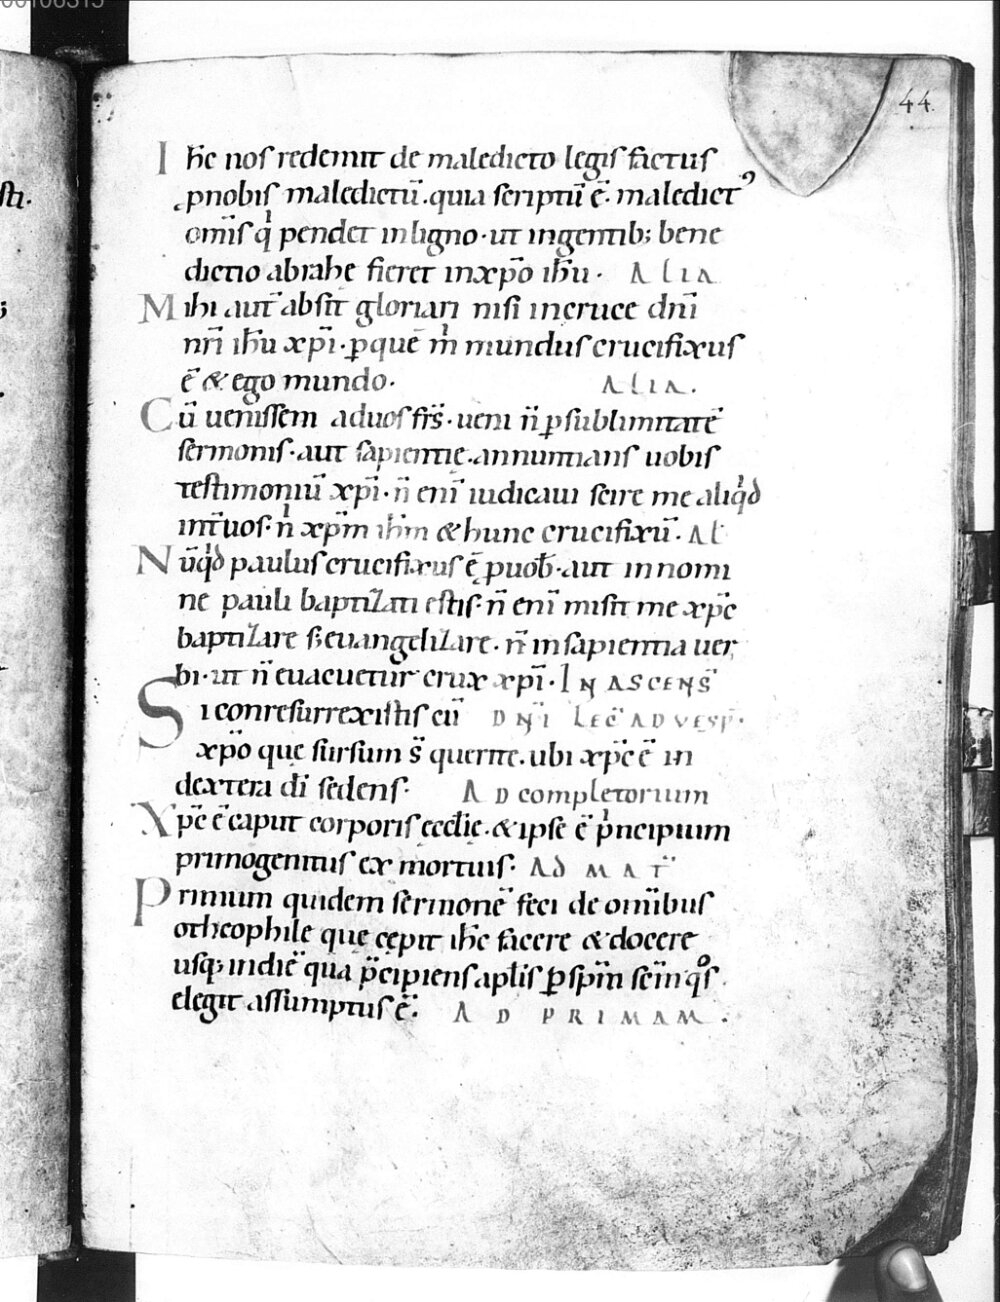 00106315
44.
I hc̄ nos redemit de maledicto legis factus
ꝓnobis maledictū. quia scriptū ē. maledictꝰ
om̄is q̇ pendet inligno. ut ingentib; bene
dictio abrahę fieret inxp̄o ih̄u. ALIA
Mihi aut̄ absit gloriari nisi incruce dn̄i
nr̄i ih̄u xp̄i. ꝑquē m̄ mundus crucifixus
ē & ego mundo. ALIA.
Cū uenissem aduos frs̄. ueni n̄ ꝑsublimitatē
sermonis. aut sapientię. annuntians uobis
testimoniū xp̄i. n̄ eni̅ iudicaui scire me aliq̇d
int̄uos. n̄ xp̄m ih̄m & hunc crucifixū. AL
Nūq̇d paulus crucifixus ē ꝓuob̄. aut innomi
ne pauli baptizati estis. n̄ eni̅ misit me xp̄c
baptizare s; euangelizare. n̄ insapientia uer
bi. ut n̄ euacuetur crux xp̄i. IN ASCENS̄
Si conresurrexistis cū DN̄I LEC̄ AD VESP̄.
xp̄o quę sursum s̄ querite. ubi xp̄c ē in
dextera dī sedens. AD completorium
Xp̄c ē caput corporis ęcclię. & ipse ē pͥncipium
primogenitus ex mortuis. AD MAT̄
Primum quidem sermonē feci de omībus
otheophile quę cępit ih̄c facere & docere
usq; indiē qua p̄cipiens apl̄is ꝑ sp̄m sc̄m qͦs
elegit assumptus ē. AD PRIMAM.